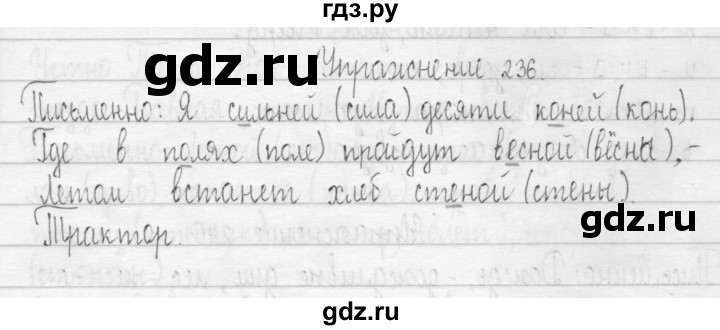 гдз.ру
gdz.ru
gdz.ru
Упражнение 236.
Письменно: Я сильней (сила) десяти коней (конь).
Где в полях (поле) пройдут весной (вёсны), -
летом встанет хлеб стеной (стены).
Трактор.
gdz.ru
gdz.ru